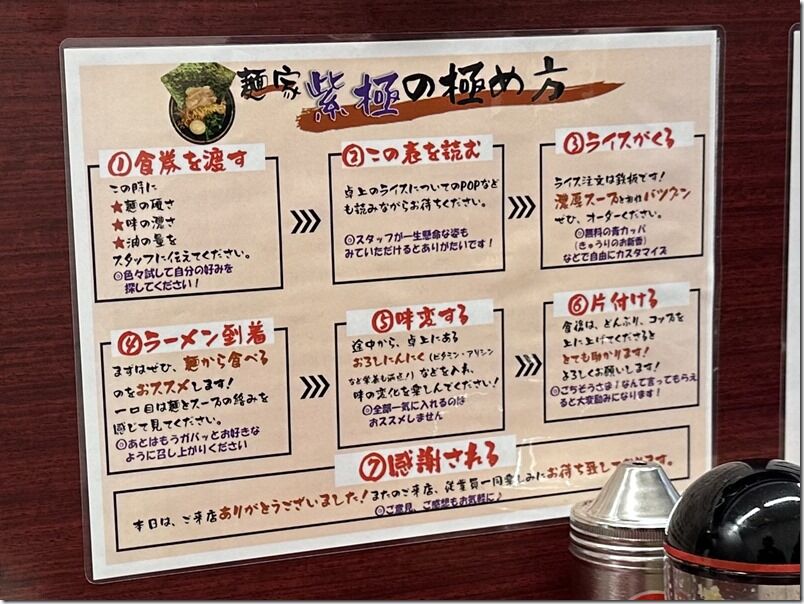 麺家 紫極の極め方
①食券を渡す
この時に
★麺の硬さ
★味の濃さ
★油の量を
スタッフに伝えてください。
◎色々試して自分の好みを
探してください!
②この表を読む
卓上のライスについてのPOPなど
も読みながらお待ちください。
◎スタッフが一生懸命な姿も
みていただけるとありがたいです!
③ライスがくる
ライス注文は鉄板です!
濃厚スープと相性バツグン
ぜひ、オーダーください。
◎無料の青カッパ
(きゅうりのお新香)
などで自由にカスタマイズ
④ラーメン到着
まずはぜひ、麺から食べる
のをおススメします!
一口目は麺とスープの絡みを
感じて見てください。
◎あとはもうガバッとお好きな
ように召し上がりください
⑤味変する
途中から、卓上にある
おろしにんにく(ビタミン・アリシン
など栄養も満点!)などを入れ、
味の変化を楽しんでください!
◎全部一気に入れるのは
おススメしません
⑥片付ける
食後は、どんぶり、コップを
上に上げてくださると
とても助かります!
よろしくお願いします。
◎ごちそうさま!なんて言ってもらえ
ると大変励みになります!
⑦感謝される
本日は、ご来店ありがとうございました!またのご来店、従業員一同楽しみにお待ち致しております。
◎ご意見、ご感想もお気軽に♪